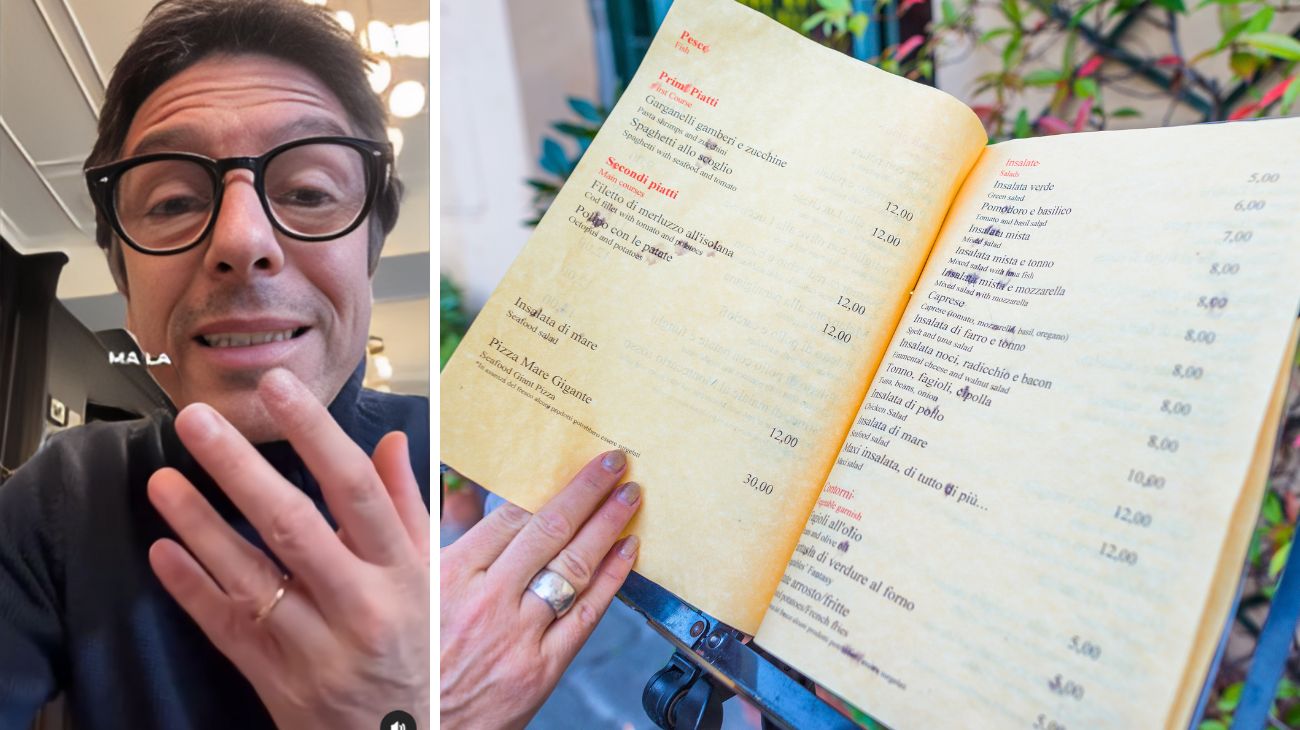 MA LA
Pesce
Fish
Primi Piatti
First Course
Garganelli gamberi e zucchine 12,00
Pasta shrimps and zucchini
Spaghetti allo scoglio 12,00
Spaghetti with seafood and tomato
Secondi piatti
Main courses
Filetto di merluzzo all'isolana 12,00
Cod fillet with tomato and potatoes
Polipo con le patate 12,00
Octopus and potatoes
Insalata di mare 12,00
Seafood salad
Pizza Mare Gigante 30,00
Seafood Giant Pizza
*In assenza del fresco alcuni prodotti potrebbero essere surgelati
Insalate
Salads
Insalata verde 5,00
Green salad
Pomodoro e basilico 6,00
Tomato and basil salad
Insalata mista 7,00
Mixed salad
Insalata mista e tonno 8,00
Mixed salad with tuna fish
Insalata mista e mozzarella 8,00
Mixed salad with mozzarella
Caprese 8,00
Caprese (tomato, mozzarella, basil, oregano)
Insalata di farro e tonno 8,00
Spelt and tuna salad
Insalata noci, radicchio e bacon 8,00
Emmental cheese and walnut salad
Tonno, fagioli, cipolla 8,00
Tuna, beans, onion
Insalata di pollo 10,00
Chicken Salad
Insalata di mare 12,00
Seafood salad
Maxi insalata, di tutto di più... 12,00
Maxi salad
Contorni
garnish
all'olio 5,00
and olive oil
di verdure al forno 5,00
Fantasy
arrosto/fritte 5,00
potatoes/French fries